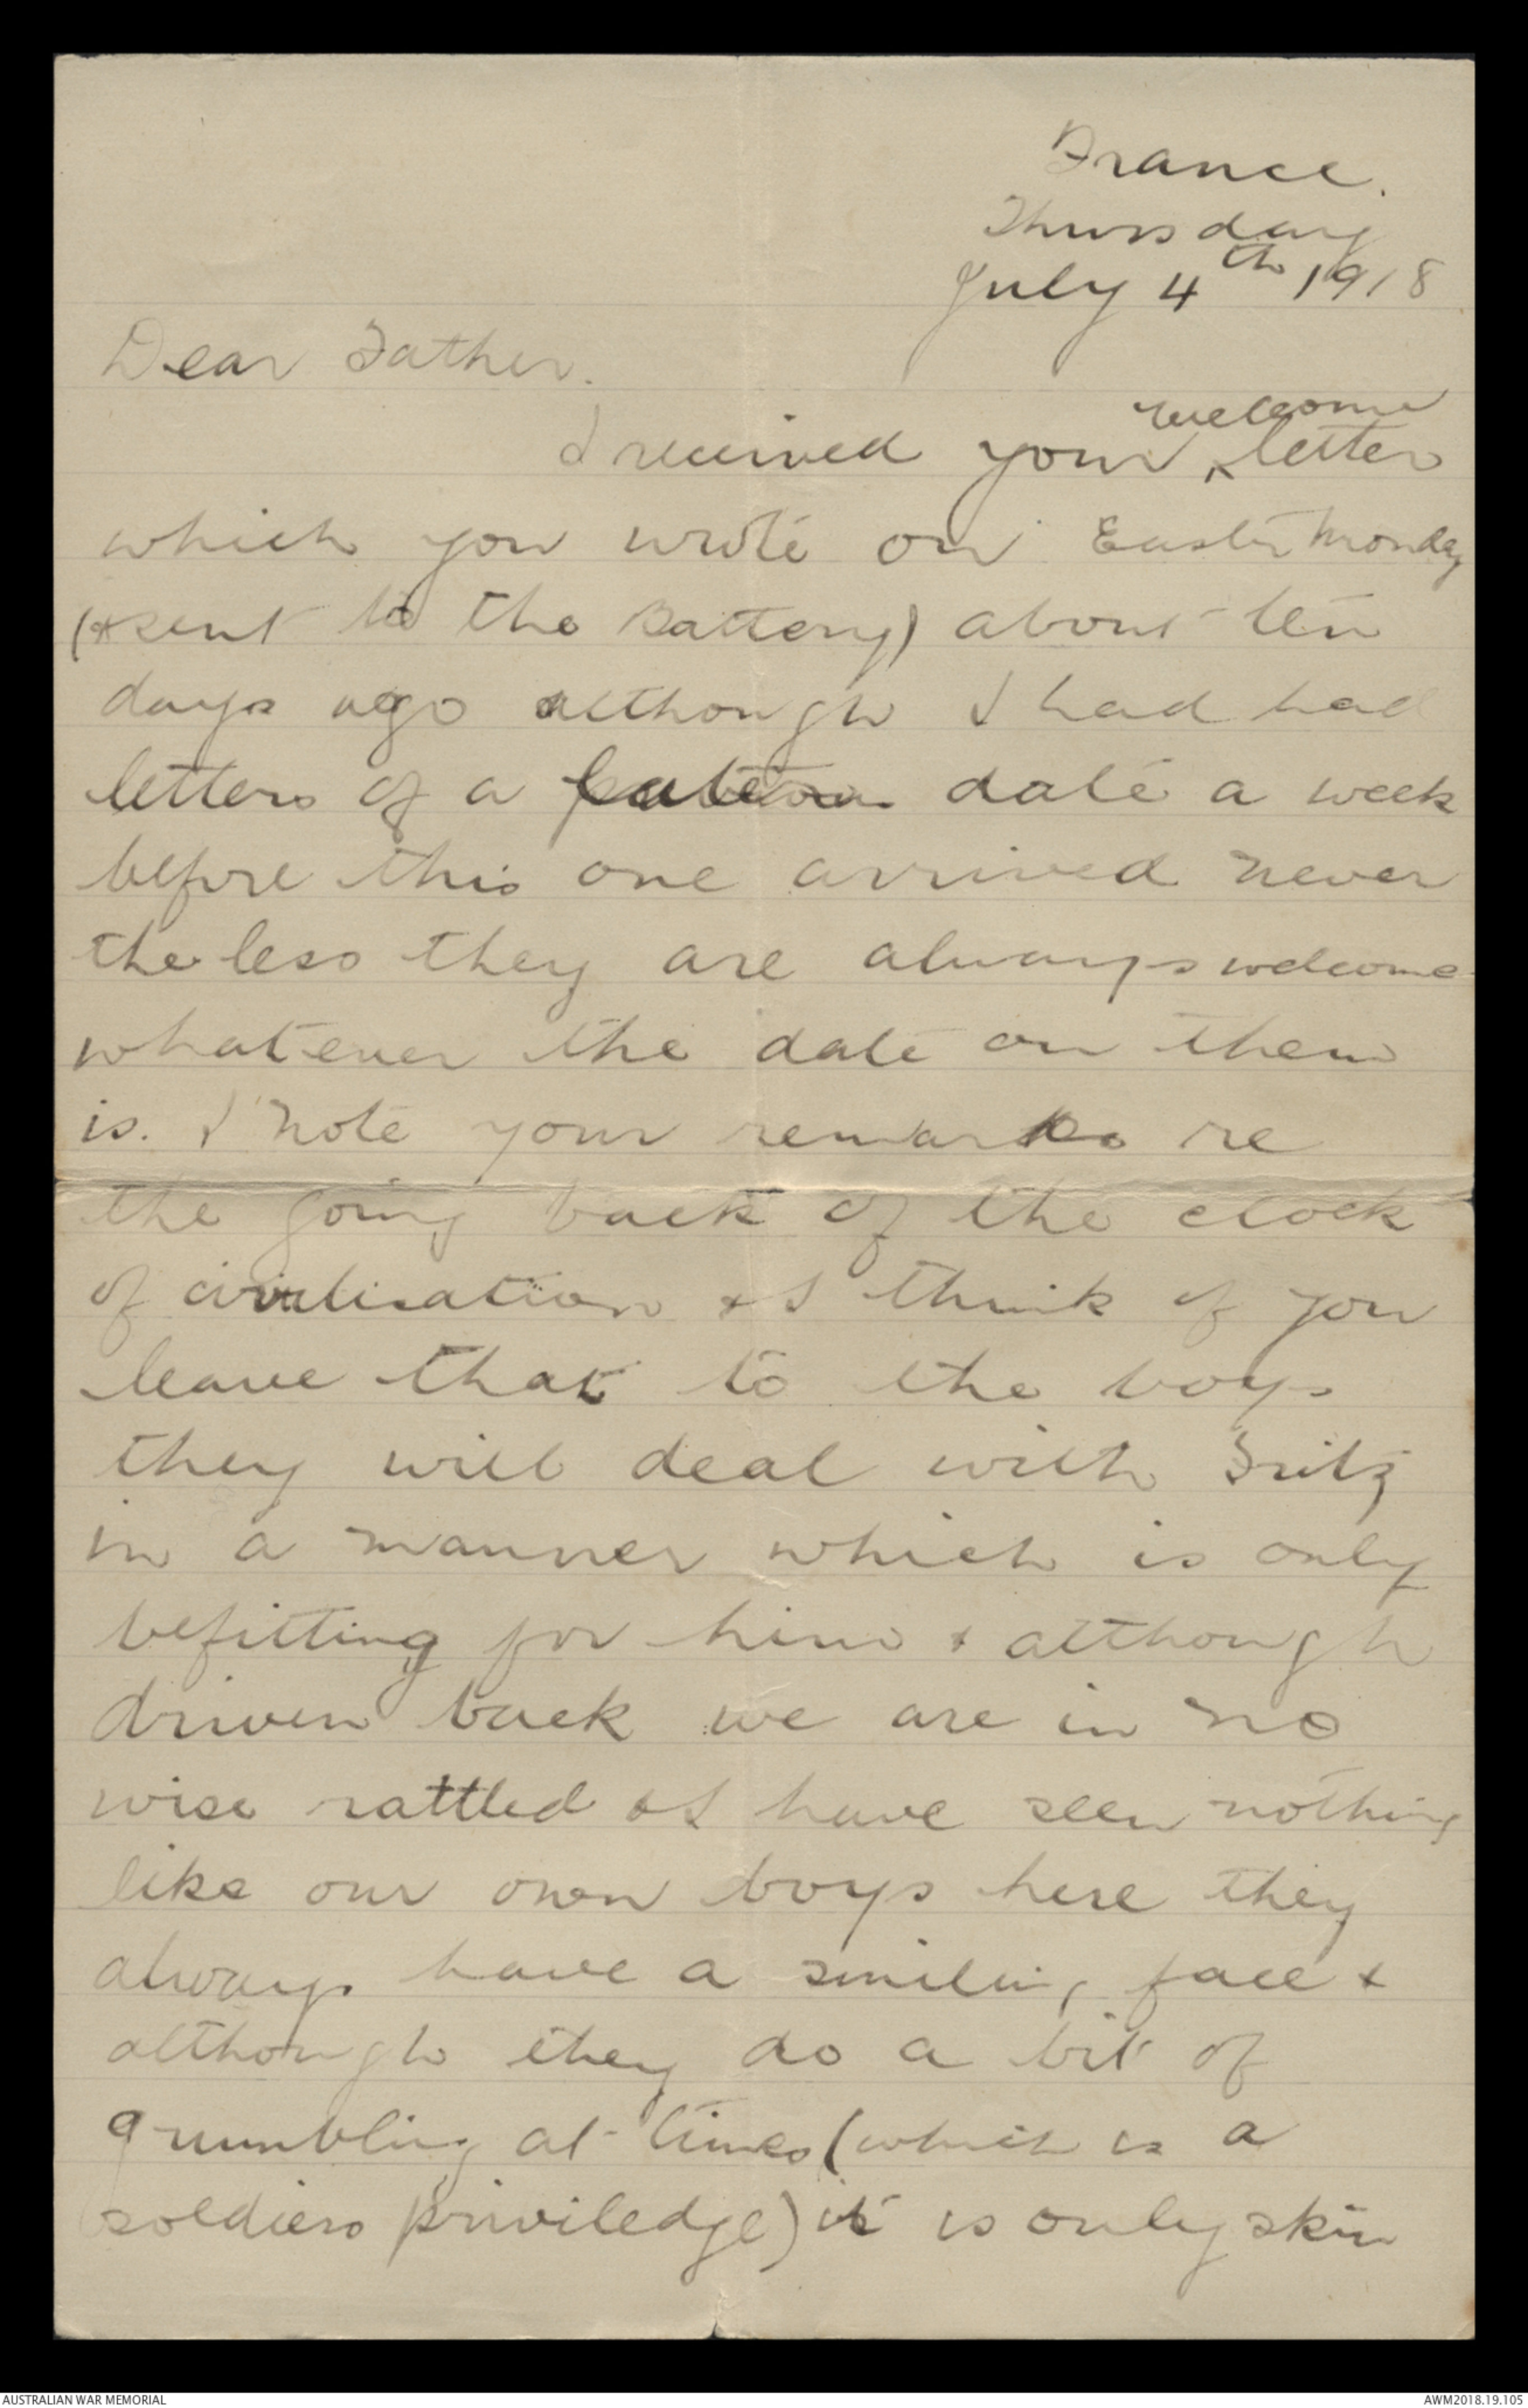 France.
Thursday
July 4th 1918
Dear Father.
I received your welcome letter
which you wrote on Easter Monday
(& sent to the Battery) about ten
days ago although I had had
letters of a date a week
before this one arrived never
the less they are always welcome
whatever the date on them
is. I note your remarks re
the going back of the clock
of civilisation & I think if you
leave that to the boys
they will deal with Fritz
in a manner which is only
befitting for him & although
driven back we are in no
wise rattled & I have seen nothing
like our own boys here they
always have a smiling face &
although they do a bit of
grumbling at times (which is a
soldiers priviledge) it is only skin
AUSTRALIAN WAR MEMORIAL
AWM2018.19.105